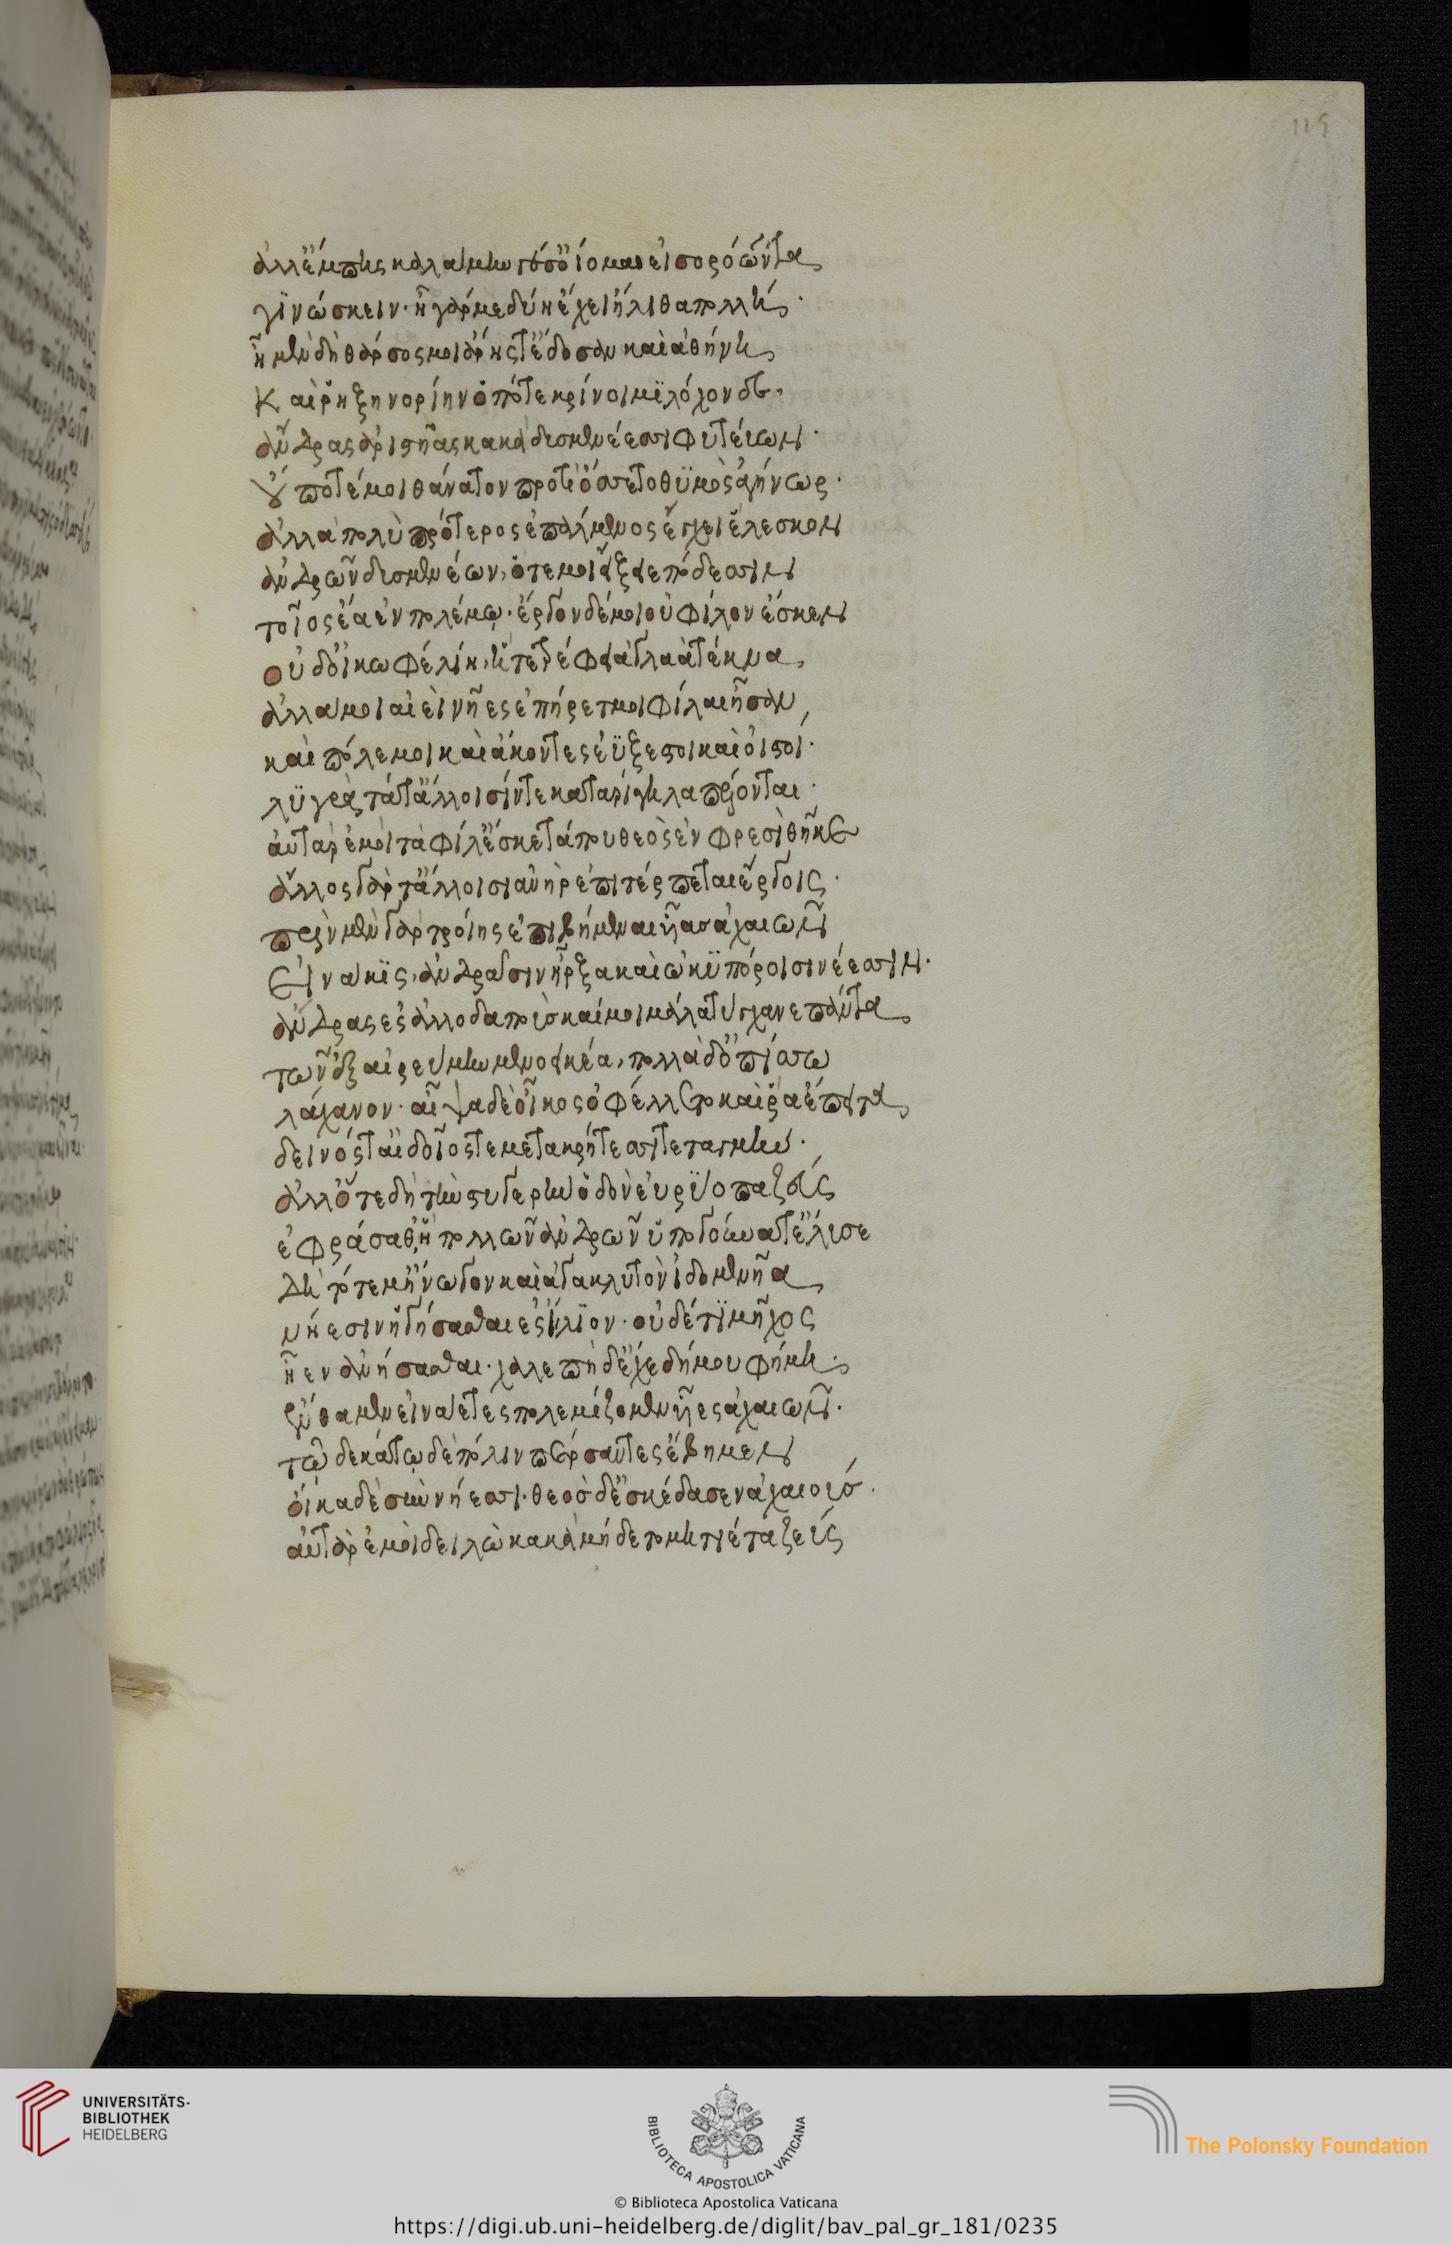 115
ἀλλ' ἔμπης καλάμην γέ σ' ὀΐομαι εἰσορόωντα
γϊνώσκειν· ἦ γάρ με δύη ἔχει ἤλιθα πολλή·
ἦ μὲν δὴ θάρσος μοι ἄρης τ' ἔδοσαν καὶ ἀθήνη
Καὶ ῥηξηνορίην ὁπότε κρίνοιμϊ λόχον δὲ,
ἄνδρας ἀριστῆας κακὰ δισμενέεσσι φυτεύων·
Οὔ ποτέ μοι θάνατον προτιόσσετο θϋμὸς ἀγήνωρ·
ἀλλὰ πολὺ πρότερος ἐπάλμενος ἔγχει ἕλεσκον
ἀνδρῶν δισμενέων, ὅτε μοι εἴξειε πόδεσσιν
τοῖος ἔα ἐν πολέμῳ· ἔργον δέ μοι οὐ φίλον ἔσκεν
οὐδ' οἰκωφελίη, ἥ τε τρέφει ἀγλαὰ τέκνα
ἀλλά μοι αἰεὶ νῆες ἐπήρετμοι φίλαι ἦσαν
καὶ πόλεμοι καὶ ἄκοντες ἐΰξεστοι καὶ ὀϊστοί·
λϋγρὰ τά τ' ἄλλοισίν τε καταριγηλὰ πέλονται·
αὐτὰρ ἐμοὶ τὰ φίλ' ἔσκε τά που θεὸς ἐν φρεσὶ θῆκε
ἄλλος γάρ τ' ἄλλοισι ἀνὴρ ἐπιτέρπεται ἔργοις·
πρὶν μὲν γὰρ τροίης ἐπιβήμεναι υἷας ἀχαιῶν
Εἰνάκϊς, ἀνδράσιν ἦρξα καὶ ὠκϋπόροισι νέεσσιν·
ἄνδρας ἐς ἀλλοδαποὺς καί μοι μάλα τύγχανε πάντα
τῶν ἐξαιρεύμην μενοεικέα, πολλὰ δ' ὀπίσσω
λάγχανον· αἶψα δὲ οἶκος ὀφέλλετο καί ῥα ἔπειτα
δεινός τ' αἰδοῖός τε μετὰ κρήτεσσι τετύγμην·
ἀλλ' ὅτε δὴ τὴν στυγερὴν ὁδὸν εὐρϋόπα ζεὺς
ἐφράσαθ', ἣ πολλῶν ἀνδρῶν ὑπὸ γούνατ' ἔλισε
Δὴ τότε μ' ἤνωγον καὶ ἀγακλυτὸν ἰδομενῆα
νήεσιν ἡγήσασθαι ἐς ἴλϊον· οὐδέ τϊ μῆχος
ἦεν ἀνήσασθαι· χαλεπὴ δ' ἔχε δήμου φήμη·
ἔνθα μὲν εἰνάετες πολεμίζομεν υἷες ἀχαιῶν·
τῷ δεκάτῳ δὲ πόλιν πέρσαντες ἔβημεν
οἴκαδε σὺν νήεσσι· θεὸς δ' ἐσκέδασεν ἀχαιούς·
αὐτὰρ ἐμοὶ δειλῶ κακὰ μήδετο μητίετα ζεύς
UNIVERSITÄTS-
BIBLIOTHEK
HEIDELBERG
BIBLIOTECA APOSTOLICA VATICANA
© Biblioteca Apostolica Vaticana
The Polonsky Foundation
https://digi.ub.uni-heidelberg.de/diglit/bav_pal_gr_181/0235